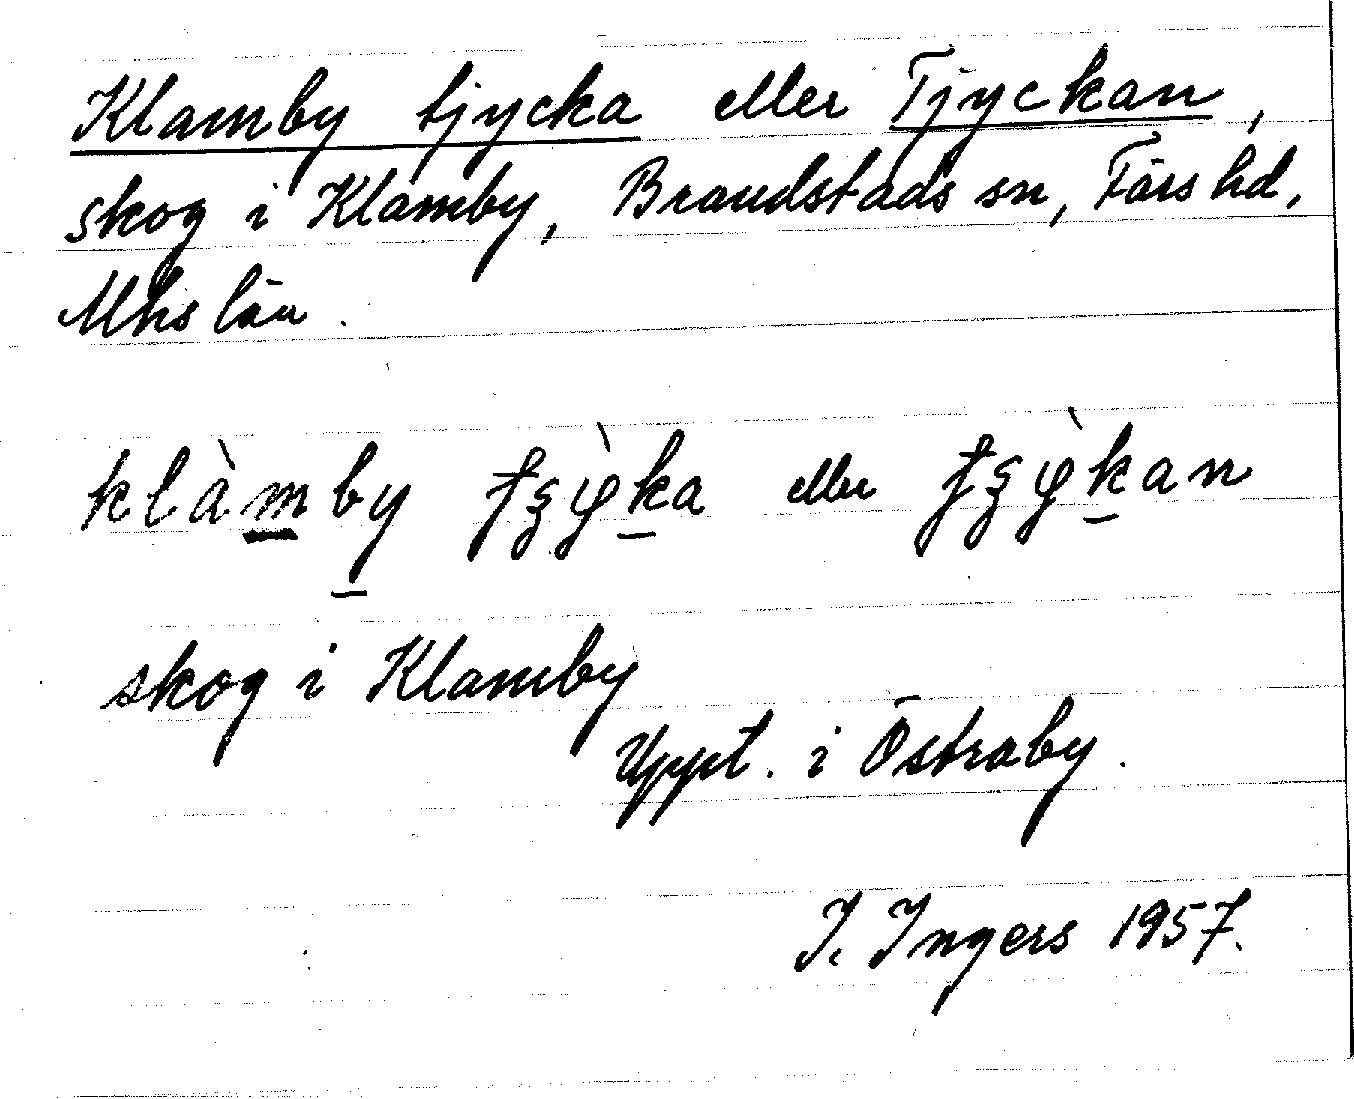 Klamby tjycka eller Tjyckan,
skog i Klamby, Brandstads sn, Färs hd,
Mhs län.
klàmby
eller
skog i Klamby
Uppt. i Östraby.
I. Ingers 1957.